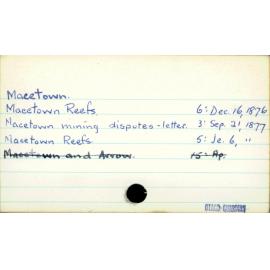 Macetown.
Macetown Reefs. 6: Dec. 16, 1876
Macetown mining disputes - letter. 3: Sep. 21, 1877
Macetown Reefs. 5: Je. 6, "
Macetown and Arrow. 15: Ap.